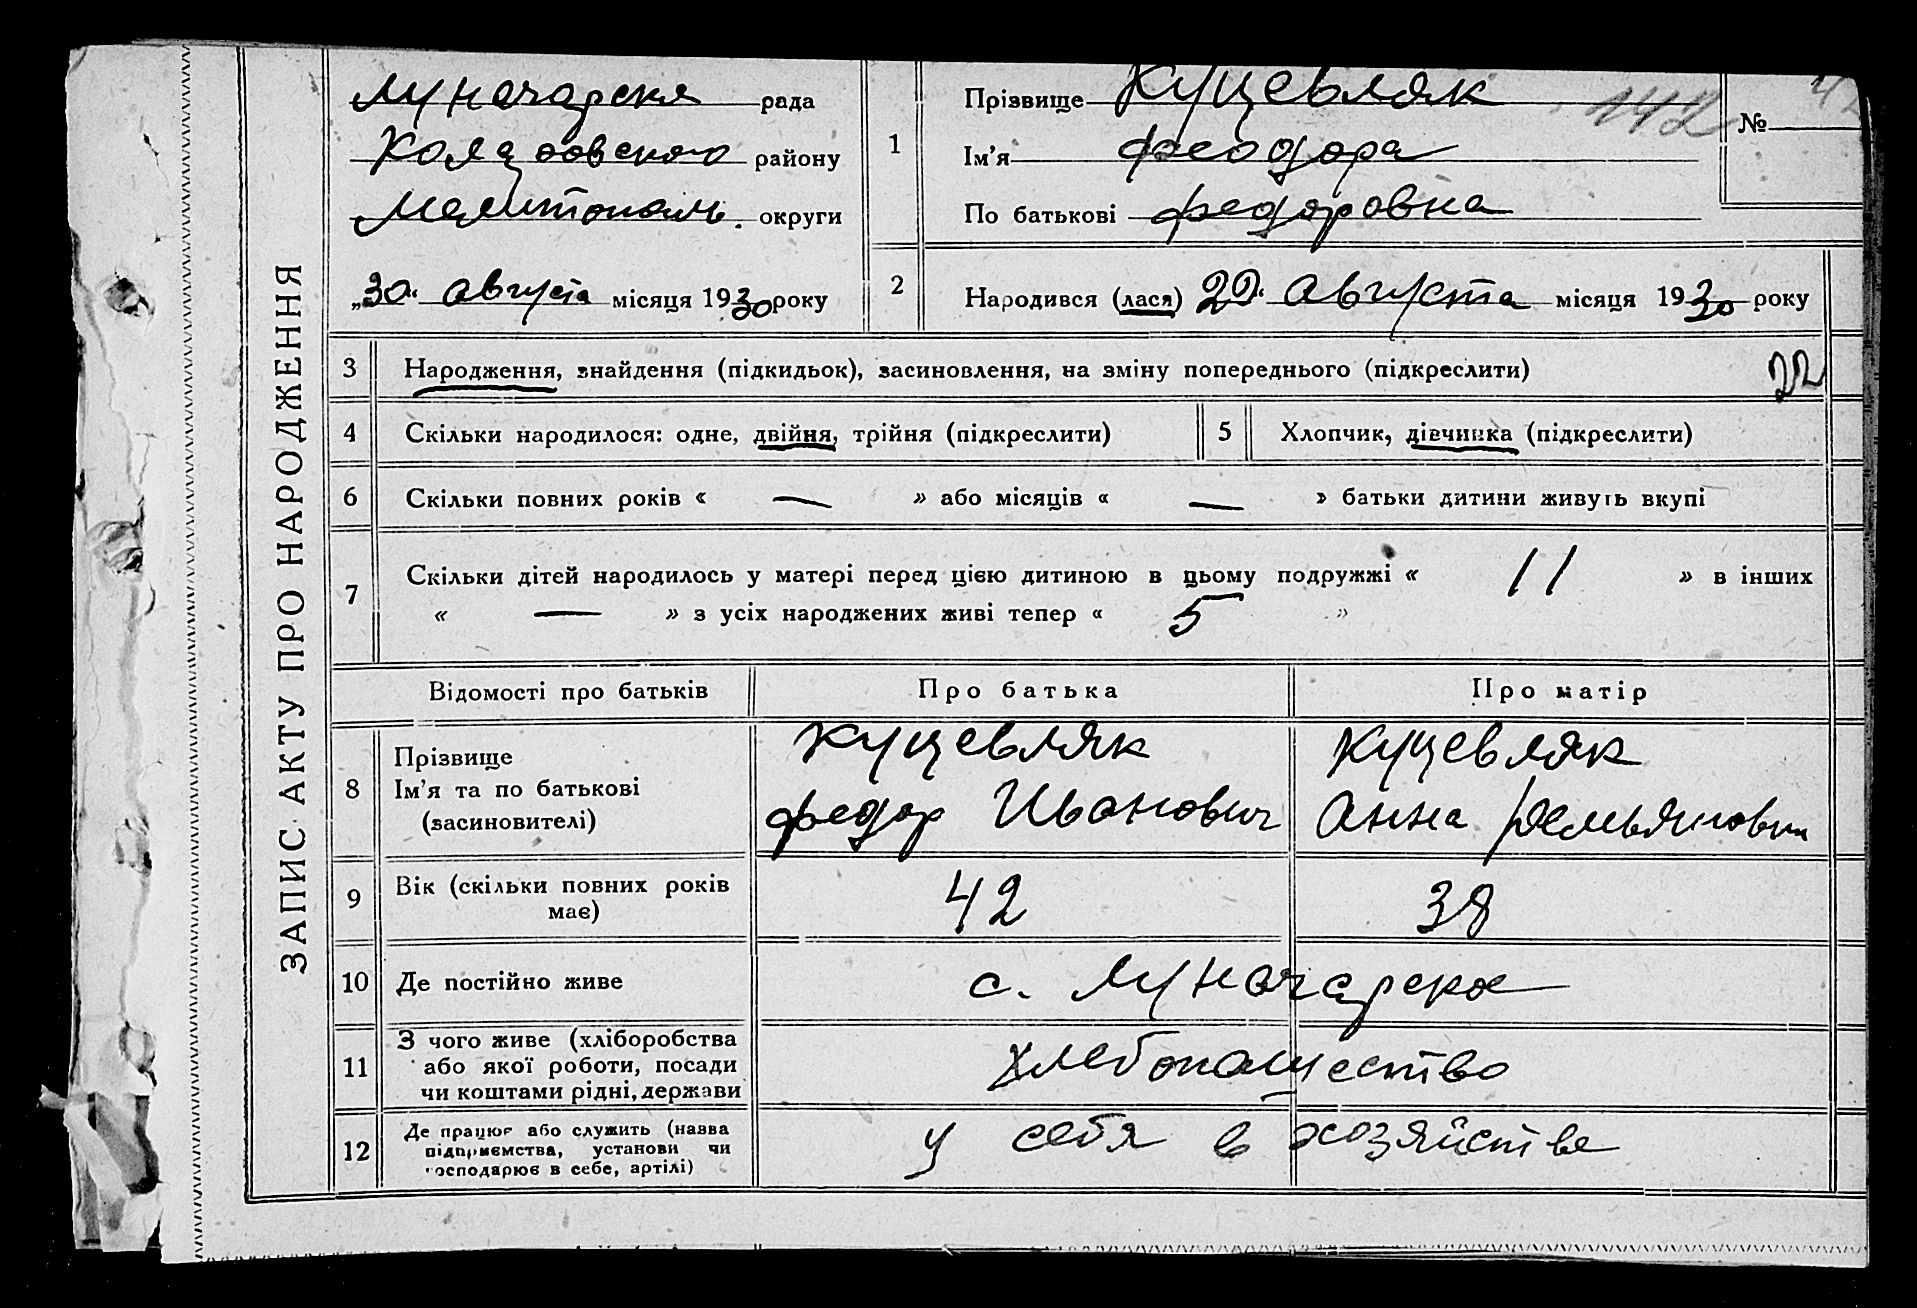 ЗАПИС АКТУ ПРО НАРОДЖЕННЯ
Луначарска рада
району
Мелитополь. округи
„30“ августа місяця 1930 року
1
Прізвище Куцевляк
Ім’я Феодора
По батькові Федоровна
142
№
2
Народився (лася) 29“ Августа місяця 1930 року
3 Народження, знайдення (підкидьок), засиновлення, на зміну попереднього (підкреслити)
22
4 Скільки народилося: одне, двійня, трійня (підкреслити)
5 Хлопчик, дівчинка (підкреслити)
6 Скільки повних років « — » або місяців « — » батьки дитини живуть вкупі
7 Скільки дітей народилось у матері перед цією дитиною в цьому подружжі « 11 » в інших
« — » з усіх народжених живі тепер « 5 »
Відомості про батьків Про батька Про матір
8
Прізвище
Ім’я та по батькові
(засиновителі)
Куцевляк
Федор Иванович
Куцевляк
Анна Демьяновн
9
Вік (скільки повних років
має)
42 38
10 Де постійно живе с. Луначарска
11
З чого живе (хліборобства
або якої роботи, посади
чи коштами рідні, держави
хлебопашество
12
Де працює або служить (назва
підприємства, установи чи
господарює в себе, артілі)
у себя в хозяйстве